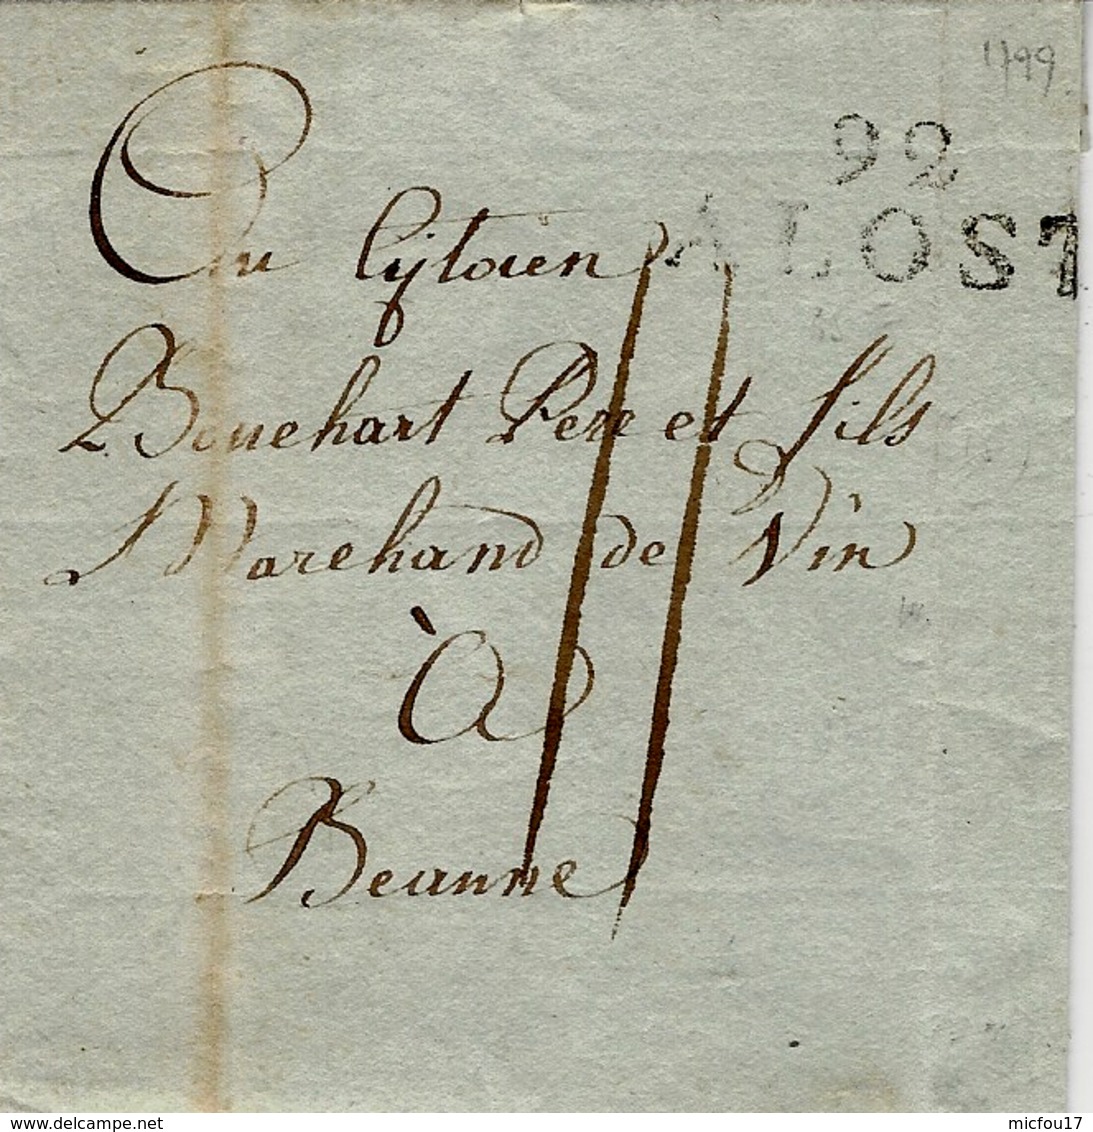 1799
92
ALOST
Au Cijtoien
Bouchart Pere et fils
Marchand de Vin
à
Beaune
delcampe.net
micfou17